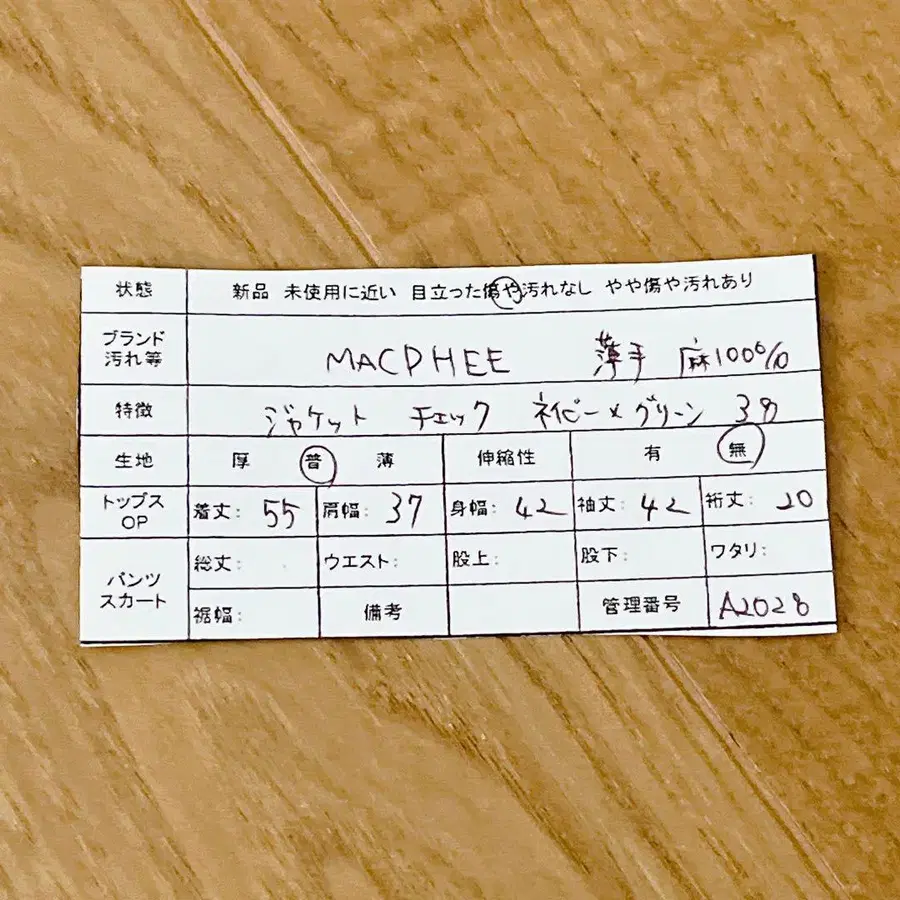 状態 新品 未使用に近い 目立った傷や汚れなし やや傷や汚れあり
ブランド
汚れ等 MACPHEE 薄手 麻100%
特徴 ジャケット チェック ネイビー×グリーン 38
生地 厚 普 薄 伸縮性 有 無
トップス
OP 着丈: 55 肩幅: 37 身幅: 42 袖丈: 42 裄丈: 20
パンツ
スカート 総丈: ウエスト: 股上: 股下: ワタリ:
裾幅: 備考 管理番号 A2028